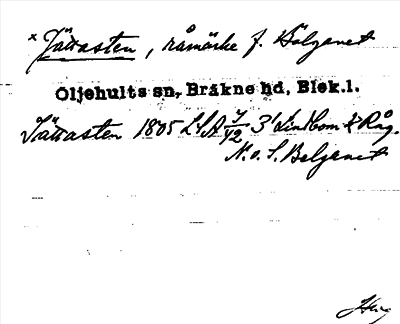 × Jättasten, råmärke f. Belganet
Öljehults sn, Bräkne hd, Blek.l.
Jättasten 1805 LSA 7/42 3' Lindbom ½ Råg.
N. o. S. Belganet